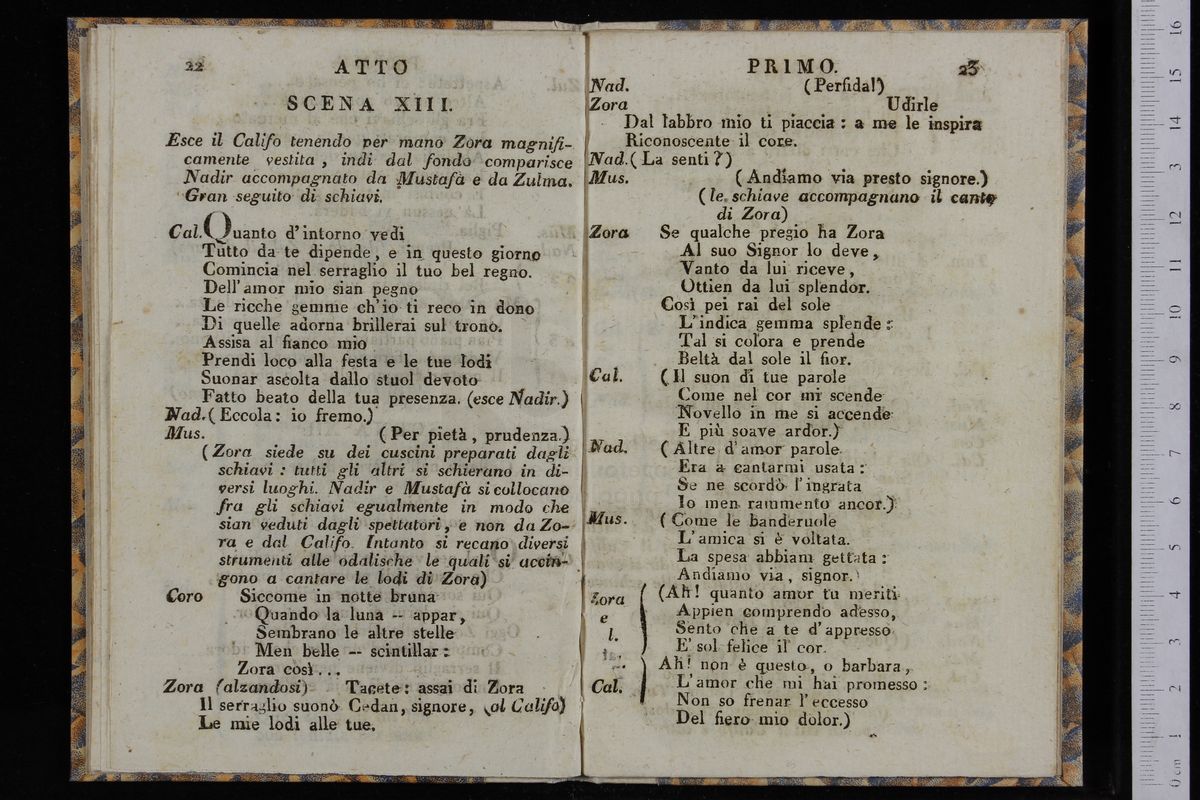 22
ATTO
SCENA XIII.
Esce il Califo tenendo per mano Zora magnifi-
camente vestita, indi dal fondo comparisce
Nadir accompagnato da Mustafà e da Zulma.
Gran seguito di schiavi.
Cal. Quanto d'intorno vedi
Tutto da te dipende, e in questo giorno
Comincia nel serraglio il tuo bel regno.
Dell'amor mio sian pegno
Le ricche gemme ch'io ti reco in dono
Di quelle adorna brillerai sul trono.
Assisa al fianco mio
Prendi loco alla festa e le tue lodi
Suonar ascolta dallo stuol devoto
Fatto beato della tua presenza. (esce Nadir.)
Nad. (Eccola: io fremo.)
Mus. (Per pietà, prudenza.)
(Zora siede su dei cuscini preparati dagli
schiavi: tutti gli altri si schierano in di-
versi luoghi. Nadir e Mustafà si collocano
fra gli schiavi egualmente in modo che
sian veduti dagli spettatori, e non da Zo-
ra e dal Califo. Intanto si recano diversi
strumenti alle odalische le quali si accin-
gono a cantare le lodi di Zora)
Coro Siccome in notte bruna
Quando la luna -- appar,
Sembrano le altre stelle
Men belle -- scintillar:
Zora così...
Zora (alzandosi) Tacete: assai di Zora
Il serraglio suonò Cedan, signore, (al Califo)
Le mie lodi alle tue.
PRIMO.
23
Nad. (Perfida!)
Zora Udirle
Dal labbro mio ti piaccia: a me le inspira
Riconoscente il core.
Nad. (La senti?)
Mus. (Andiamo via presto signore.)
(le schiave accompagnano il canto
di Zora)
Zora Se qualche pregio ha Zora
Al suo Signor lo deve,
Vanto da lui riceve,
Ottien da lui splendor.
Così pei rai del sole
L'indica gemma splende:
Tal si colora e prende
Beltà dal sole il fior.
Cal. (Il suon di tue parole
Come nel cor mi scende
Novello in me si accende
E più soave ardor.)
Nad. (Altre d'amor parole
Era a cantarmi usata:
Se ne scordò l'ingrata
Io men rammento ancor.)
Mus. (Come le banderuole
L'amica si è voltata.
La spesa abbiam gettata:
Andiamo via, signor.)
Zora (Ah! quanto amor tu meriti
e Appien comprendo adesso,
l. Sento che a te d'appresso
E' sol felice il cor.
Ah! non è questo, o barbara,
Cal. L'amor che mi hai promesso:
Non so frenar l'eccesso
Del fiero mio dolor.)